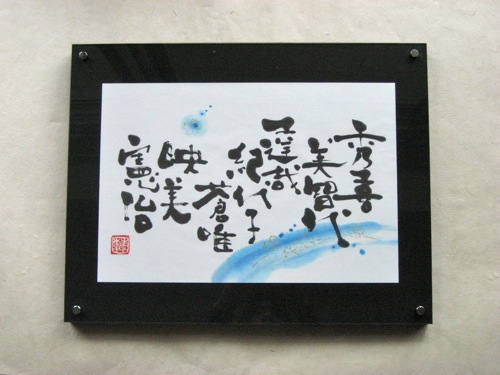 秀喜
美智代
達哉
紀代子
蒼唯
映美
憲治